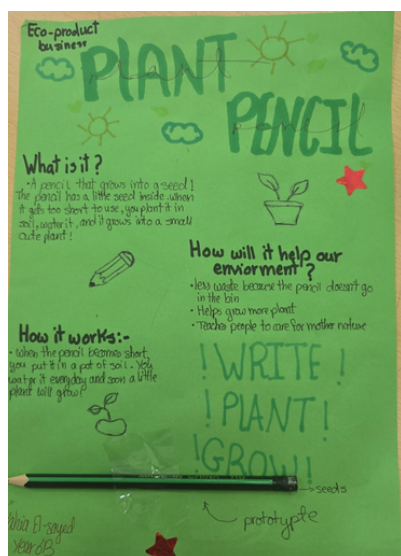 Eco-product
business
PLANT
PENCIL
What is it?
• A pencil that grows into a seed!
The pencil has a little seed inside when
it gets too short to use, you plant it in
soil, water it, and it grows into a small
cute plant!
How will it help our
enviorment?
• less waste because the pencil doesn't go
in the bin
• Helps grow more plant
• Teaches people to care for mother nature
How it works:-
• When the pencil becomes short,
you put it in a pot of soil. You
water it everyday and soon a little
plant will grow!
! WRITE !
! PLANT !
! GROW !
seeds
prototyple
El-sayed
Year 6B